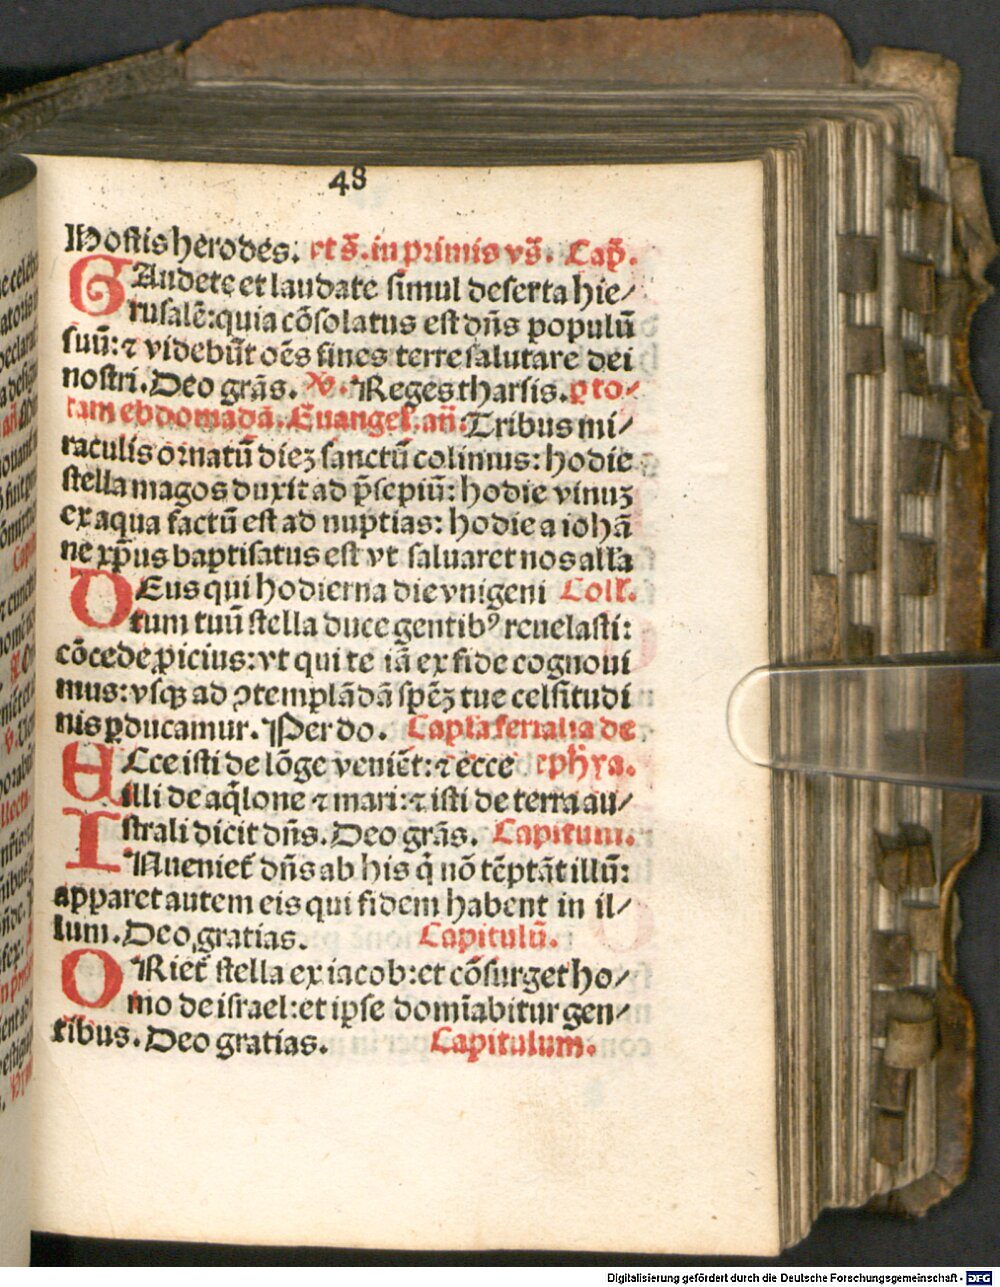 48
Hostis herodes. et s̃. in primis vs̃. Cap̃.
GAudete et laudate simul deserta hie⸗
rusalē: quia cōsolatus est dn̄s populū
suū: ⁊ videbūt oēs fines terre salutare dei
nostri. Deo grãs. ℟. Reges tharsis. ꝑ to⸗
tam ebdomadā. Euangel̃. añ: Tribus mi⸗
raculis ornatū dieʒ sanctū colimus: hodie
stella magos duxit ad p̄sepiū: hodie vinuʒ
ex aqua factū est ad nuptias: hodie a iohā
ne xp̄us baptisatus est vt saluaret nos alla
DEus qui hodierna die vnigeni Coll̃.
tum tuū stella duce gentibꝰ reuelasti:
cōcede ꝓpicius: vt qui te iā ex fide cognoui
mus: vsqꝫ ad ꝯtemplādā spēʒ tue celsitudi
nis ꝑducamur. Per do. Capl̃a ferialia de
ECce isti de lōge veniēt: ⁊ ecce ephya.
illi de aq̄lone ⁊ mari: ⁊ isti de terra au⸗
strali dicit dn̄s. Deo grãs. Capitum.
INueniet̃ dn̄s ab his q̄ nō tēptāt illū:
apparet autem eis qui fidem habent in il⸗
lum. Deo gratias. Capitulū.
ORiet̃ stella ex iacob: et cōsurget ho⸗
mo de israel: et ipse dom̄iabitur gen⸗
tibus. Deo gratias. Capitulum.
Digitalisierung gefördert durch die Deutsche Forschungsgemeinschaft - DFG